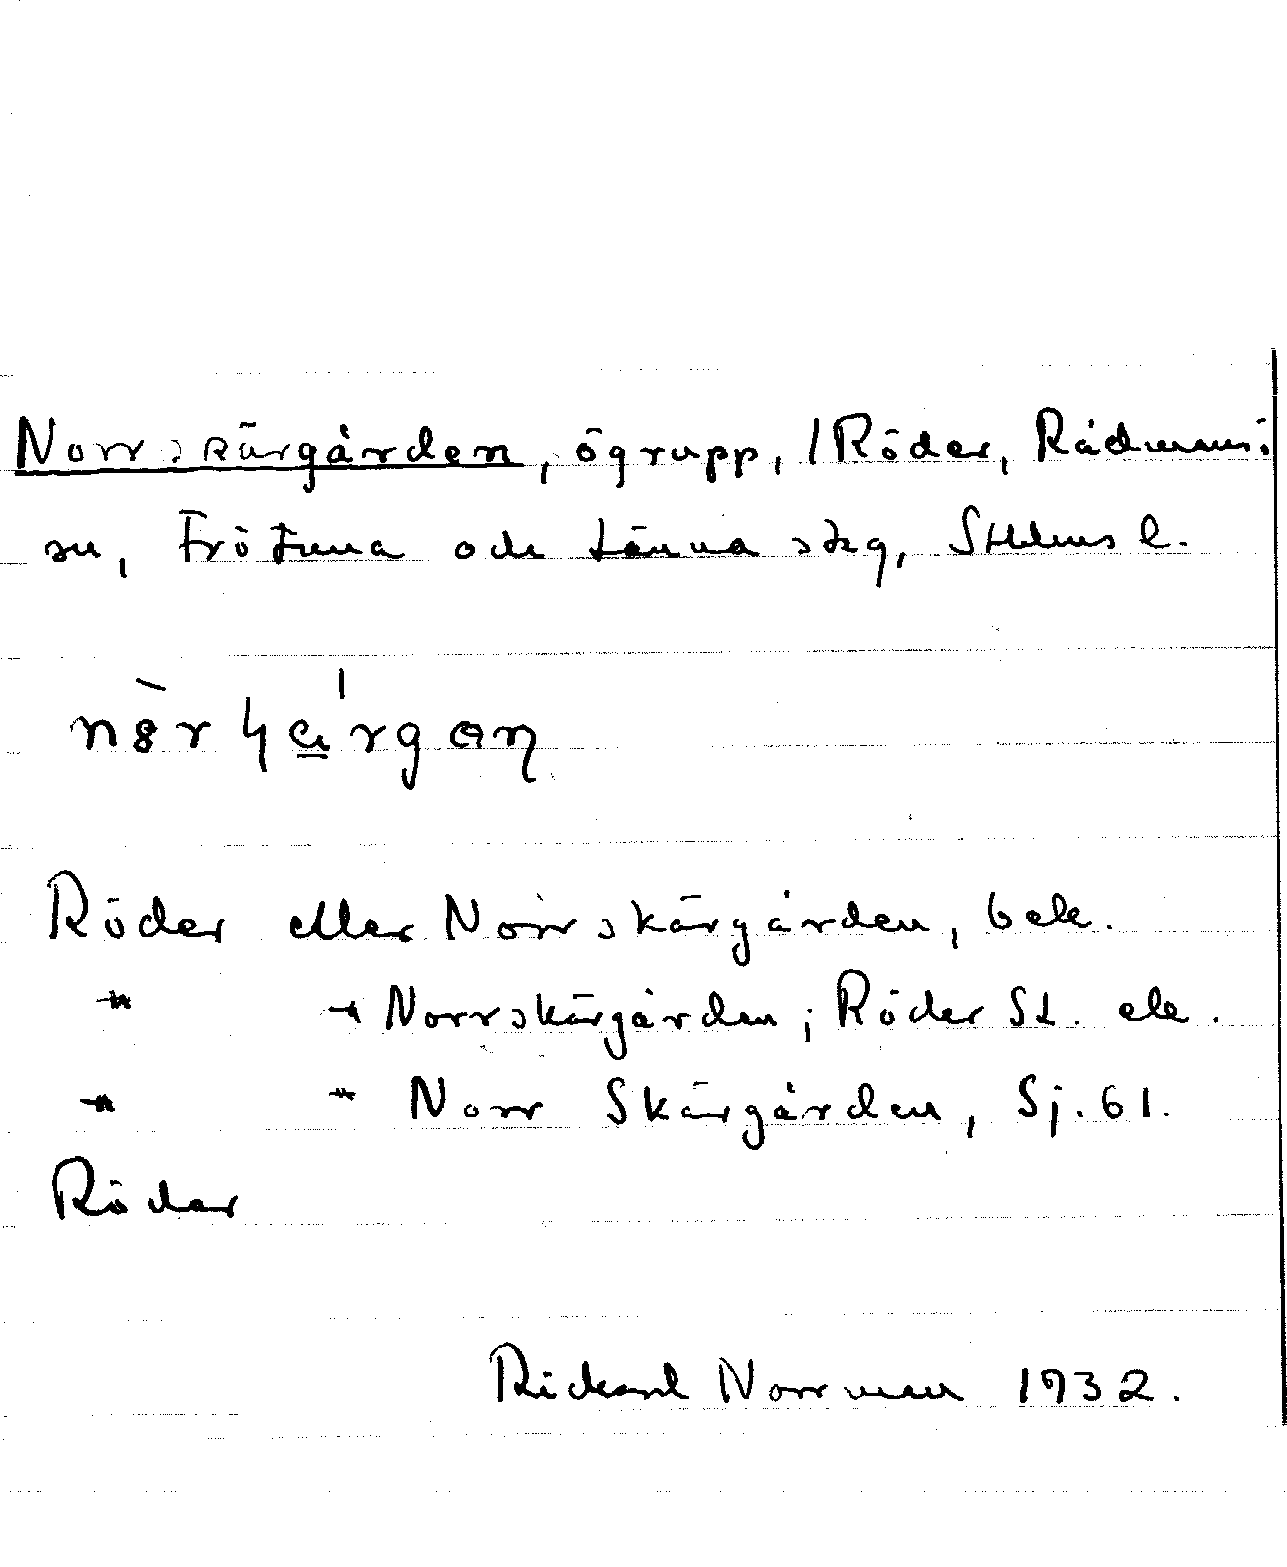 Norrskärgården, ögrupp, / Röder, Rådmans:
su, Frötuna och Länna skg, Sthlms l.
Röder eller Norrskärgården, bek.
" " Norrskärgården; Röder St. ek.
" " Norr Skärgården, Sj. 61.
Röder
Rickard Norrman 1932.